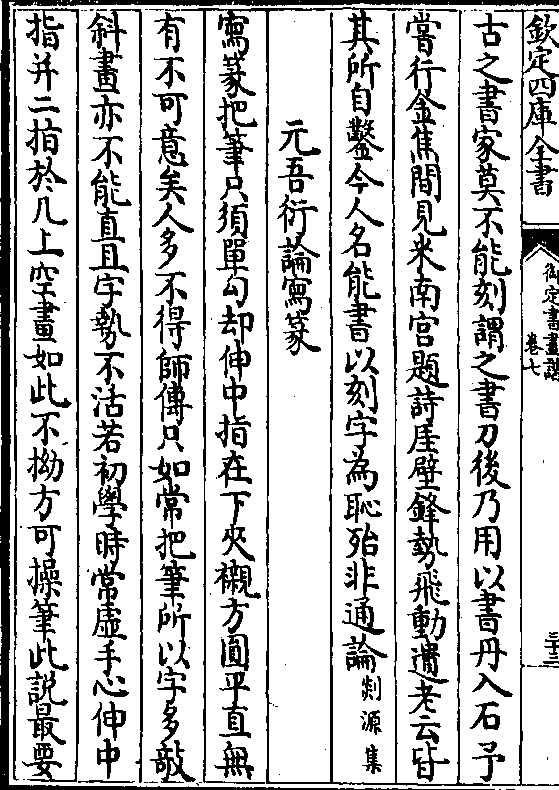 欽定四庫全書
御定書畫譜
卷七
三十三
古之書家莫不能刻謂之書刀後乃用以書丹入石予
嘗行金焦間見米南宫題詩厓壁鋒勢飛動遺老云皆
其所自鑿今人名能書以刻字為恥殆非通論剡源集
元吾衍論寫篆
寫篆把筆只須單勾却伸中指在下夾襯方圓平直無
有不可意矣人多不得師傳只如常把筆所以字多敧
斜畫亦不能直且字勢不活若初學時當虛手心伸中
指并二指於几上空畫如此不拗方可操筆此說最要